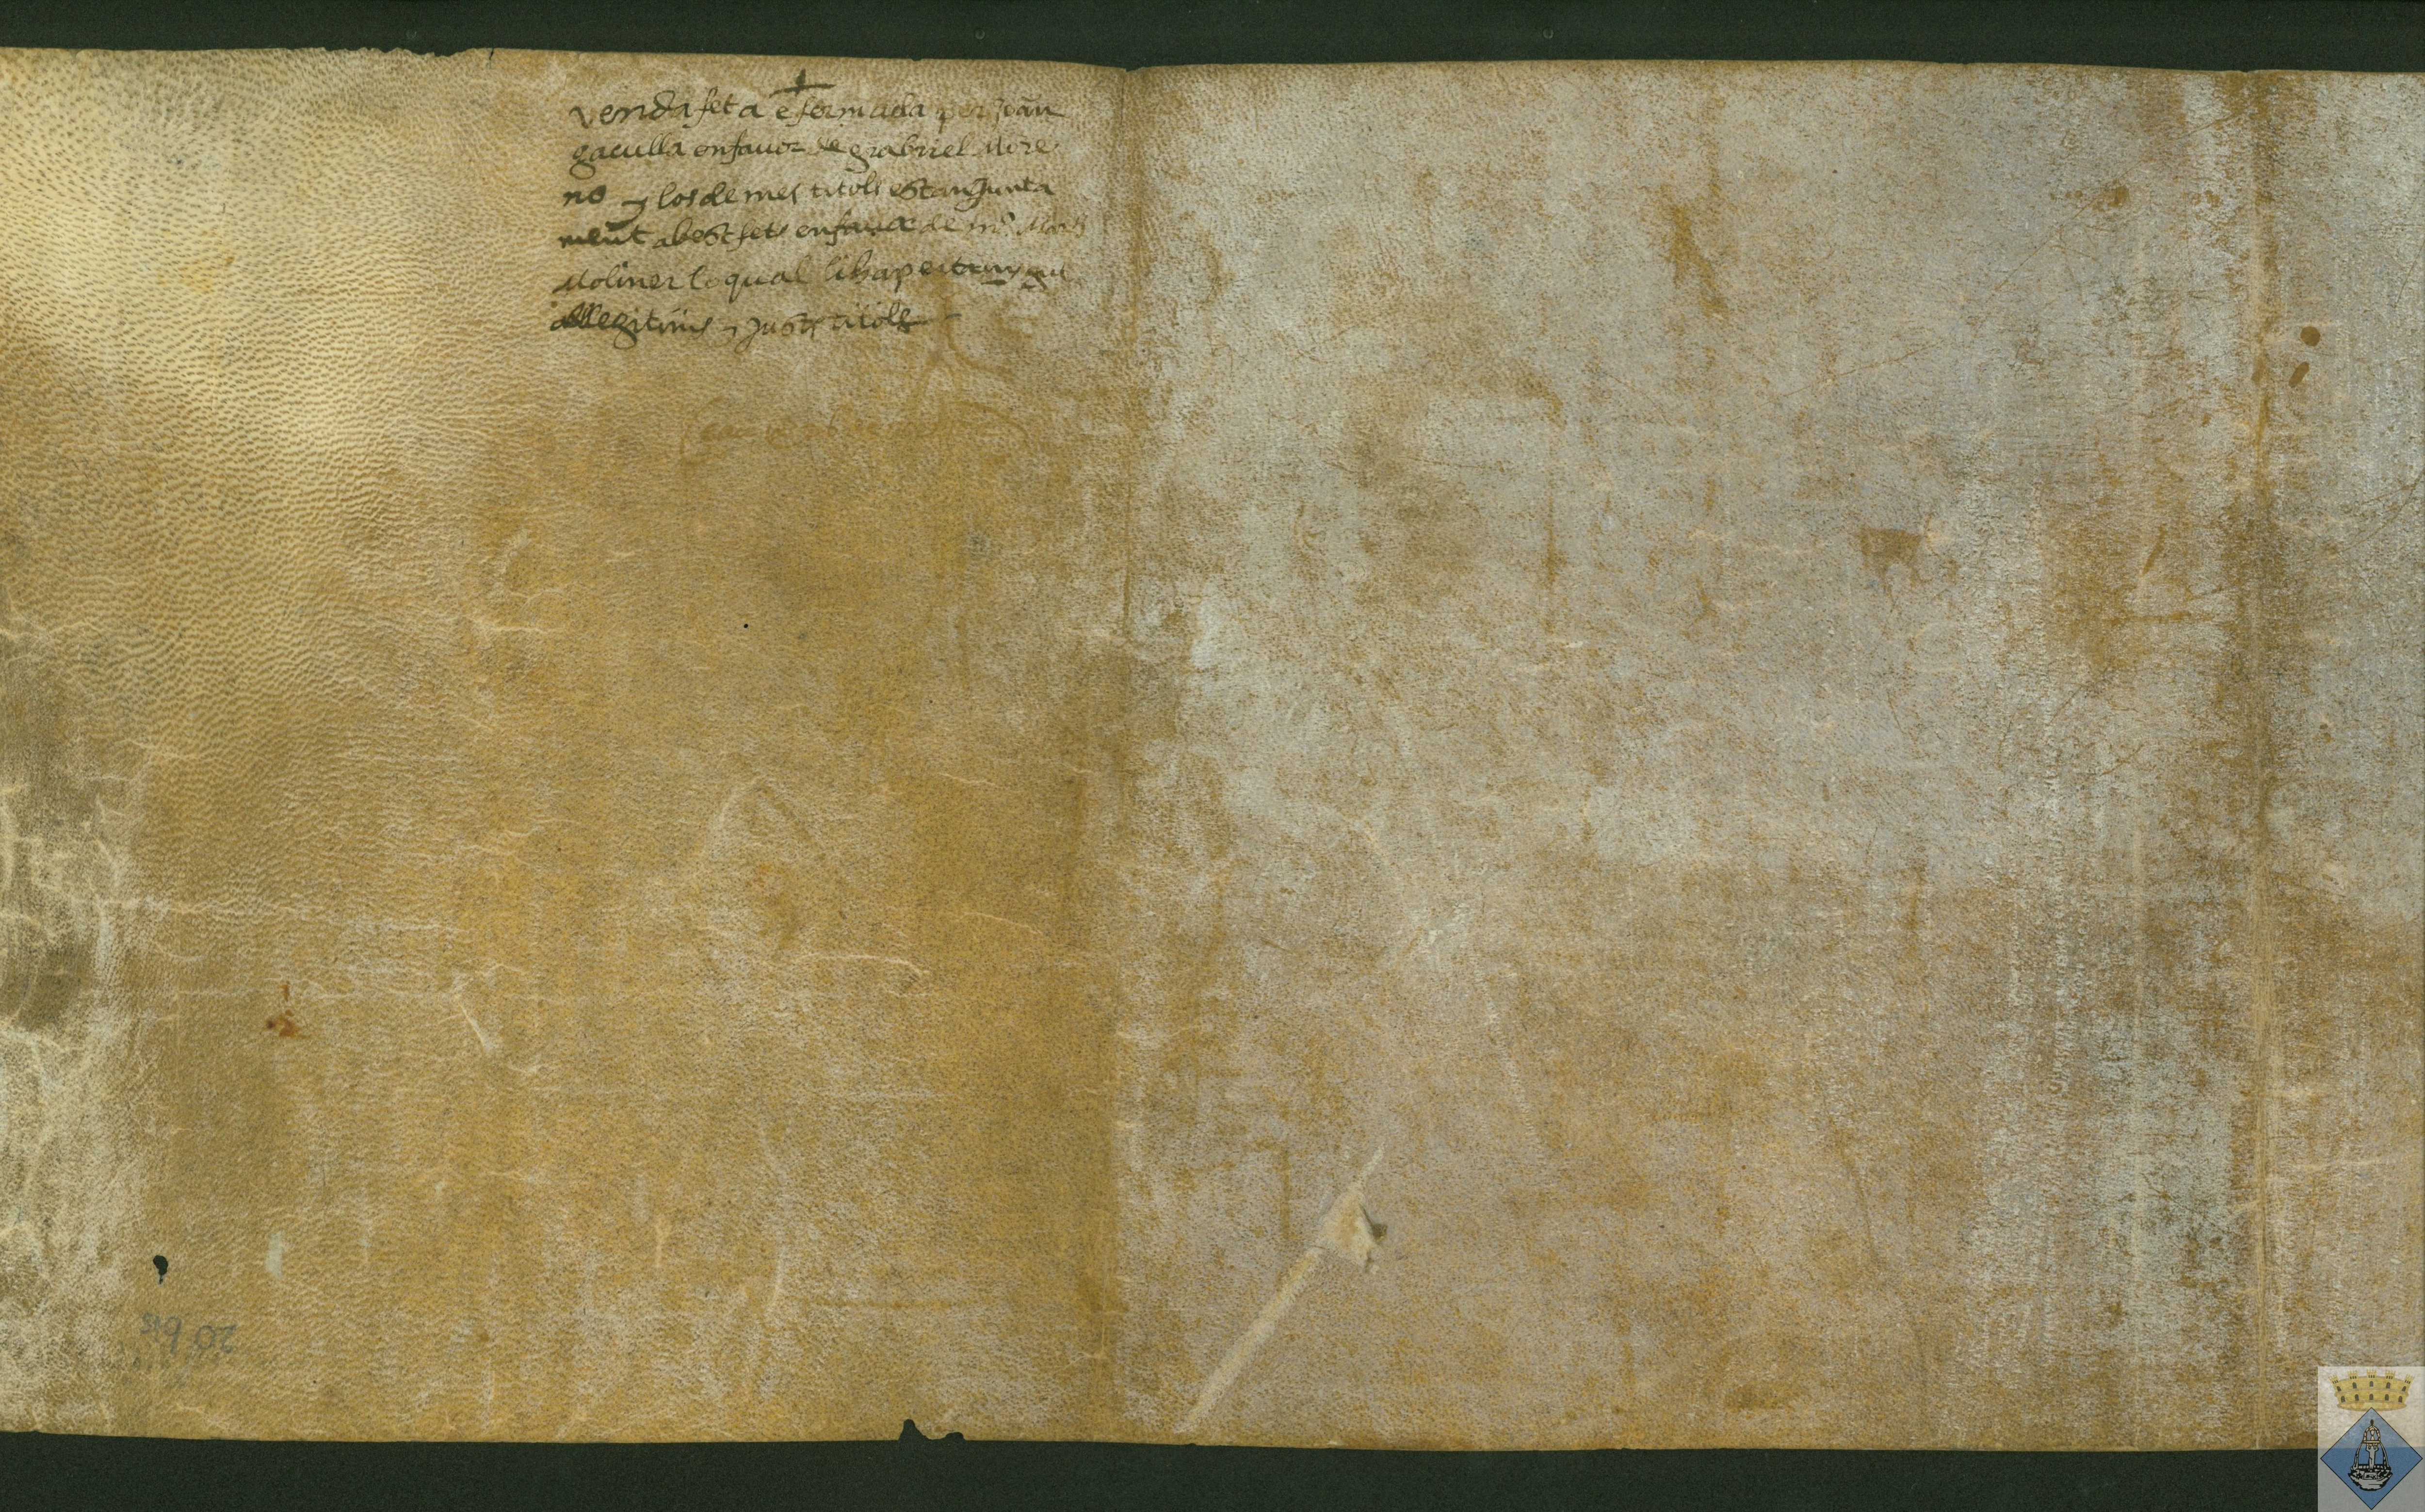 +
venda feta e fermada per Joan
gaculla en favor de grabriel More
no y los de mes titols estan Junta
ment ab est fets en favor de mº Marti
Moliner lo qual li ha pertangut
ab llegitims y Justs titols
20 bis